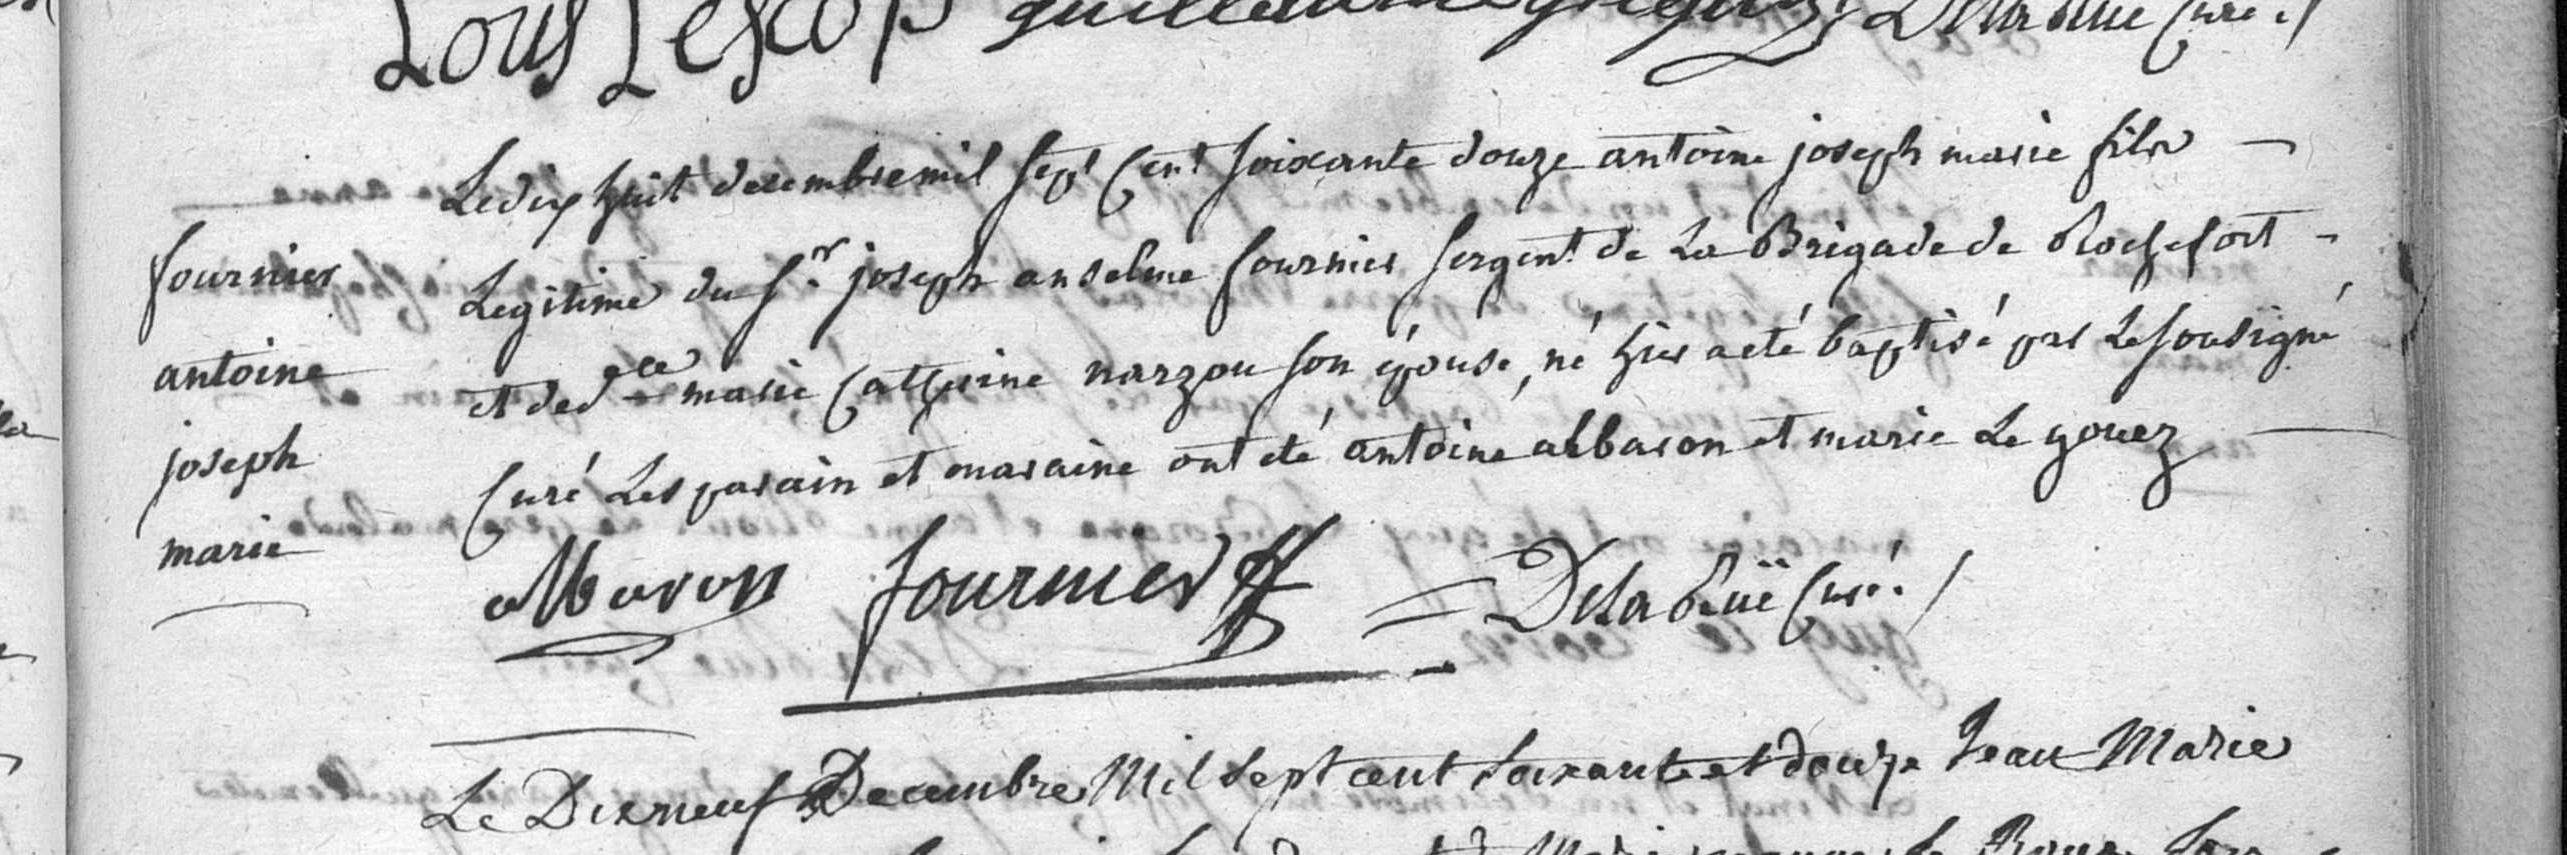 Lous Lescop guillaume Delarüe Curé
Le dix huit desembre mil sept Cent soixante douze antoine joseph marie fils
fournier
Legitime du Sr. joseph anselme fournier sergent de La Brigade de Rochefort
antoine
et de dlle marie Catherine narzou son épouse, né hier a eté baptisé par Le sousigné
joseph
Curé Les parain et maraine ont eté antoine albaron et marie Le gouez
marie
albaron fournier Delarüe Curé
Le Dixneuf Decembre Mil Sept cent Soixante et douze Jean Marie